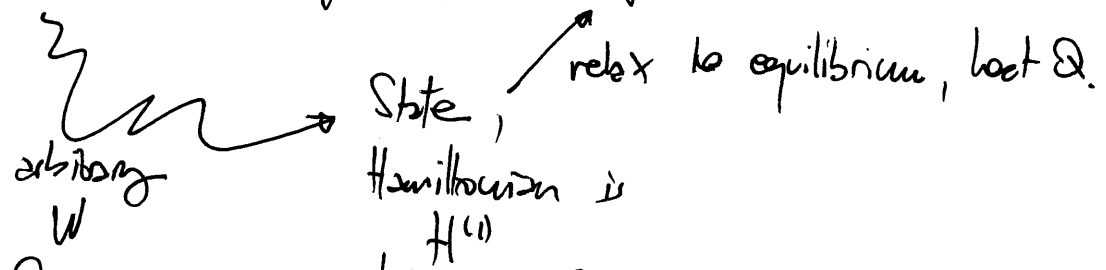 relax to equilibrium, heat Q.
State,
arbitrary
Hamiltonian is
W
H^(1)